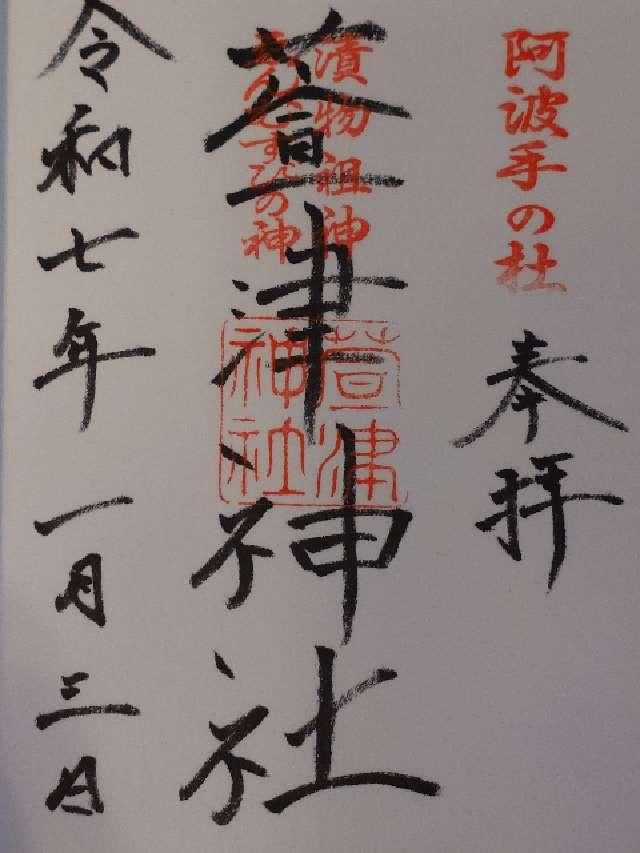 阿波手の杜
奉拝
漬物祖神
えんむすびの神
萱津神社
萱津
神社
令和七年一月三日